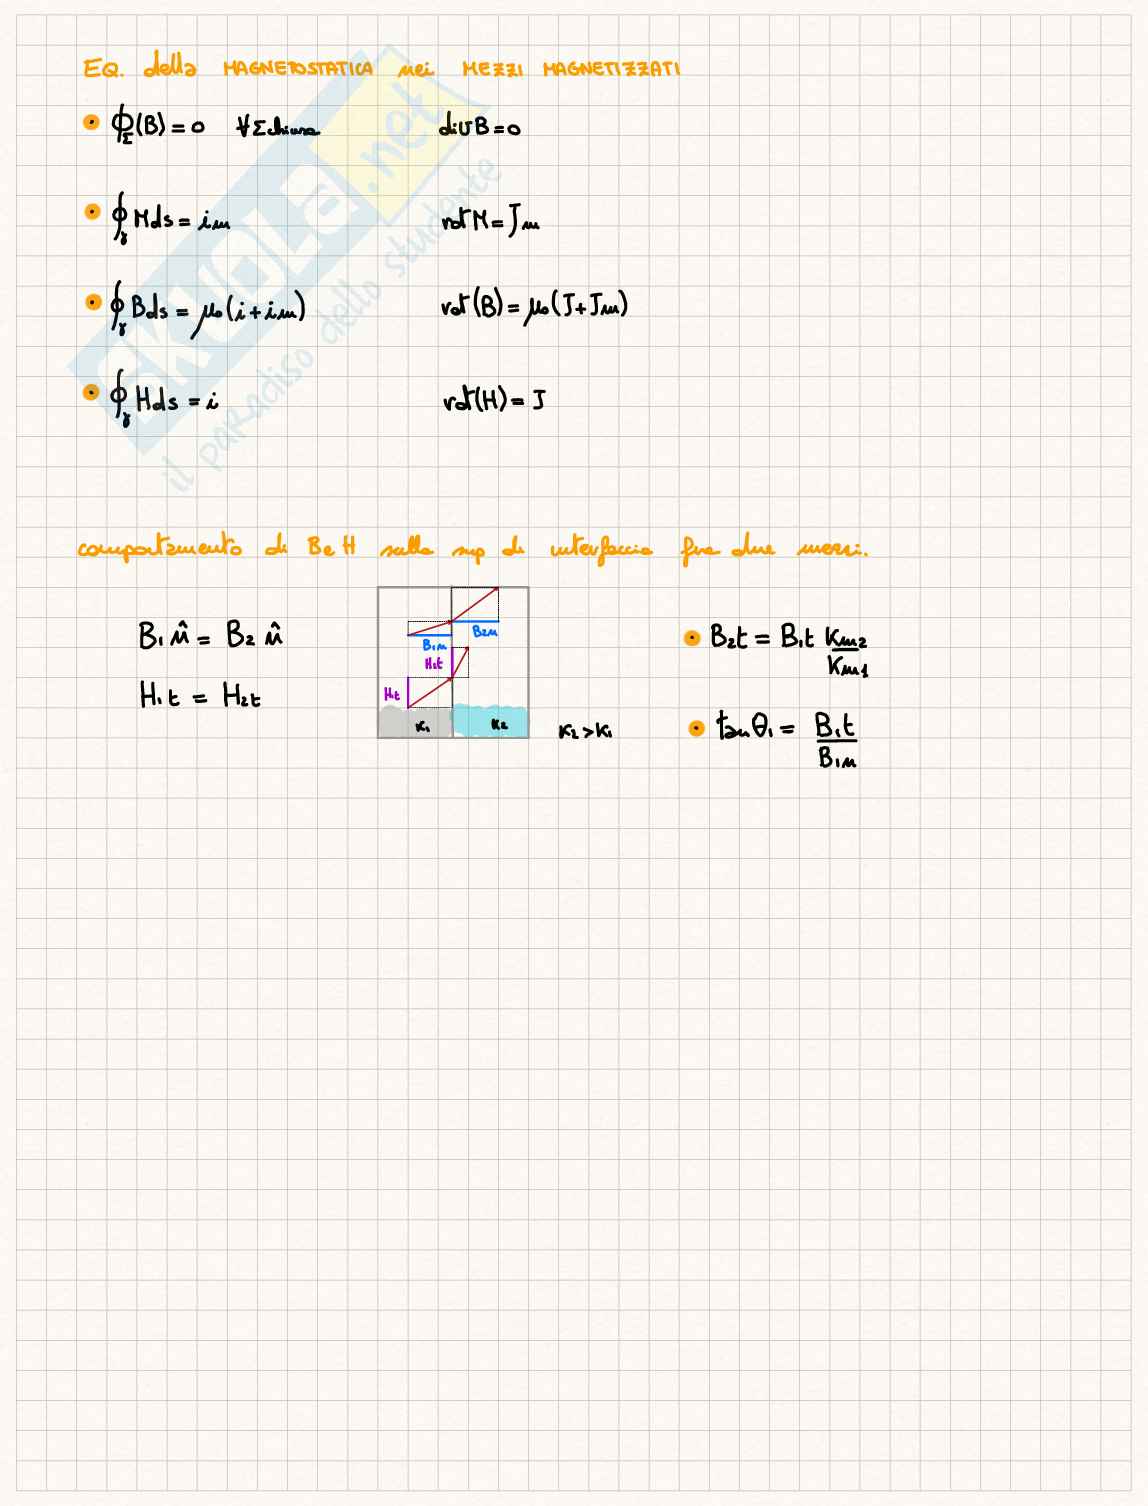 EQ. della MAGNETOSTATICA nei MEZZI MAGNETIZZATI
Φ_Σ(B) = 0 ∀Σ chiusa div B = 0
∮_γ M ds = i_m rot M = J_m
∮_γ B ds = μ₀(i + i_m) rot(B) = μ₀(J + J_m)
∮_γ H ds = i rot(H) = J
comportamento di B e H sulla sup di interfaccia fra due mezzi.
B₁ n̂ = B₂ n̂
H₁t = H₂t
B₂n
B₁n
H₂t
H₁t
K₁ K₂
K₂ > K₁
B₂t = B₁t Km₂/Km₁
tan θ₁ = B₁t/B₁n
SKUOLA.net
il paradiso dello studente